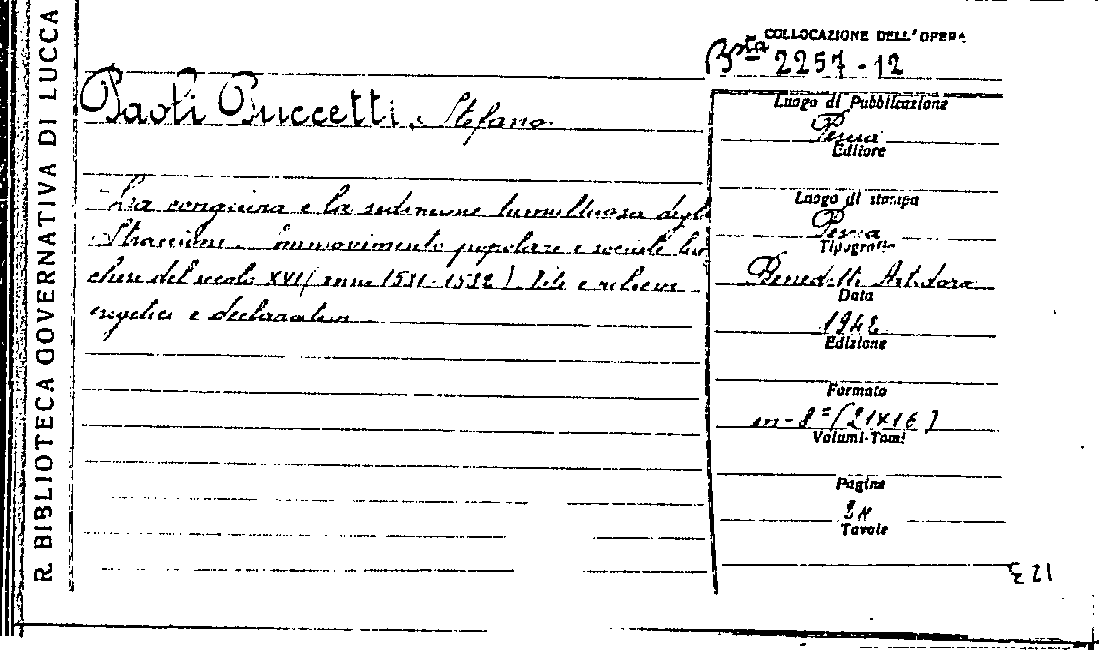 R. BIBLIOTECA GOVERNATIVA DI LUCCA
COLLOCAZIONE DELL'OPERA
Bsta 2257-12
Paoli Puccetti Stefano
La congiura e la sedizione tumultuosa degli
Straccioni. movimento popolare e sociale luc
chese del secolo XVI (anno 1531-1532)
e
Luogo di Pubblicazione
Pescia
Editore
Luogo di stampa
Pescia
Tipografia
Benedetti Art. dora
Data
1942
Edizione
Formato
in-8° (21x16)
Volumi-Tomi
Pagine
Tavole